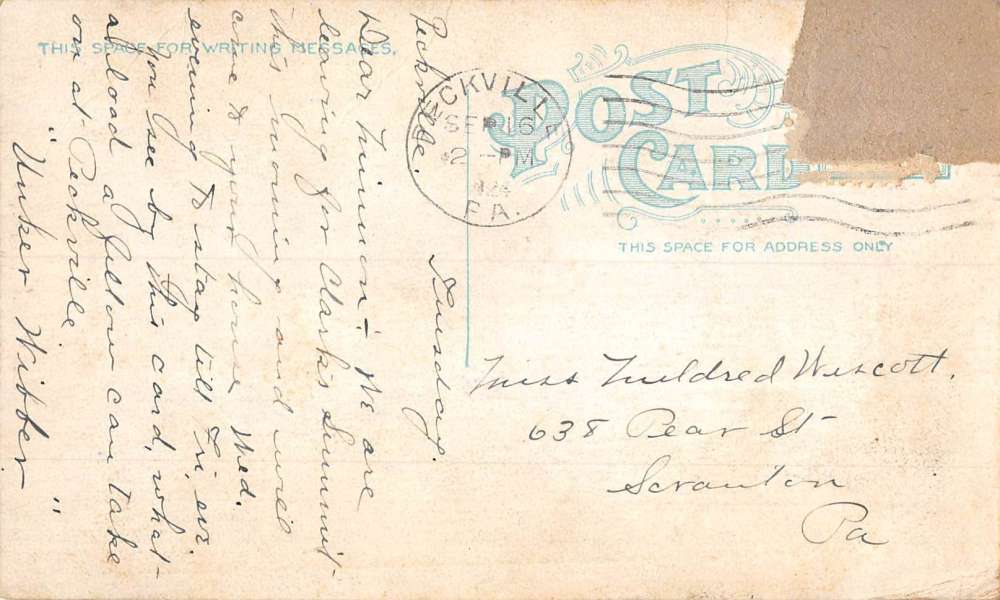 THIS SPACE FOR WRITING MESSAGES.
POST
CARD
THIS SPACE FOR ADDRESS ONLY
CKVILLE
SEP 16
2 - PM
PA.
Peckville. Tuesday.
Dear Minnion:- We are
leaving for Clarks Summit
this morning and will
come to your house Wed.
evening to stay till Fri, ev.
You see by this card, what
a load a fellow can take
on at Peckville.
"Unker Wibber"
Miss Mildred Wescott.
638 Pear St
Scranton
Pa